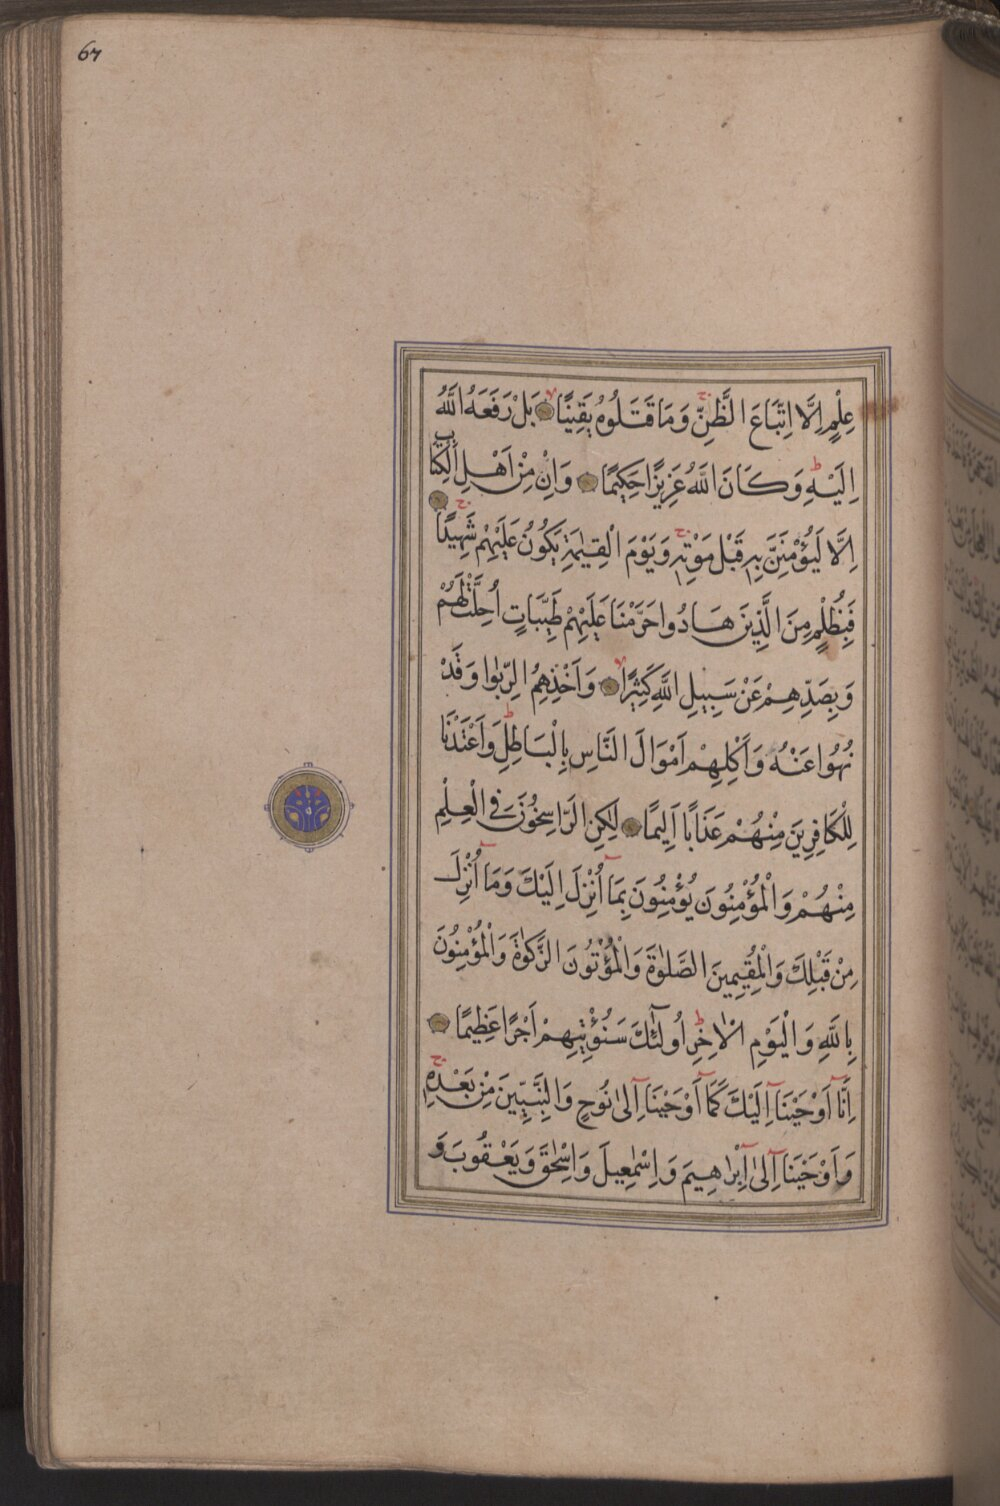 67
عِلْمٍ اِلَّا اتِّبَاعَ الظَّنِّ وَمَا قَتَلُوهُ يَقِينًا بَلْ رَفَعَهُ اللَّهُ
اِلَيْهِ وَكَانَ اللَّهُ عَزِيزًا حَكِيمًا وَاِنْ مِنْ اَهْلِ الْكِتَابِ
اِلَّا لَيُؤْمِنَنَّ بِهِ قَبْلَ مَوْتِهِ وَيَوْمَ الْقِيٰمَةِ يَكُونُ عَلَيْهِمْ شَهِيدًا
فَبِظُلْمٍ مِنَ الَّذِينَ هَادُوا حَرَّمْنَا عَلَيْهِمْ طَيِّبَاتٍ اُحِلَّتْ لَهُمْ
وَبِصَدِّهِمْ عَنْ سَبِيلِ اللَّهِ كَثِيرًا وَاَخْذِهِمُ الرِّبٰوا وَقَدْ
نُهُوا عَنْهُ وَاَكْلِهِمْ اَمْوَالَ النَّاسِ بِالْبَاطِلِ وَاَعْتَدْنَا
لِلْكَافِرِينَ مِنْهُمْ عَذَابًا اَلِيمًا لٰكِنِ الرَّاسِخُونَ فِى الْعِلْمِ
مِنْهُمْ وَالْمُؤْمِنُونَ يُؤْمِنُونَ بِمَا اُنْزِلَ اِلَيْكَ وَمَا اُنْزِلَ
مِنْ قَبْلِكَ وَالْمُقِيمِينَ الصَّلٰوةَ وَالْمُؤْتُونَ الزَّكٰوةَ وَالْمُؤْمِنُونَ
بِاللَّهِ وَالْيَوْمِ الْاٰخِرِ اُولٰئِكَ سَنُؤْتِيهِمْ اَجْرًا عَظِيمًا
اِنَّا اَوْحَيْنَا اِلَيْكَ كَمَا اَوْحَيْنَا اِلٰى نُوحٍ وَالنَّبِيِّينَ مِنْ بَعْدِهِ
وَاَوْحَيْنَا اِلٰى اِبْرٰاهِيمَ وَاِسْمٰعِيلَ وَاِسْحٰقَ وَيَعْقُوبَ وَ